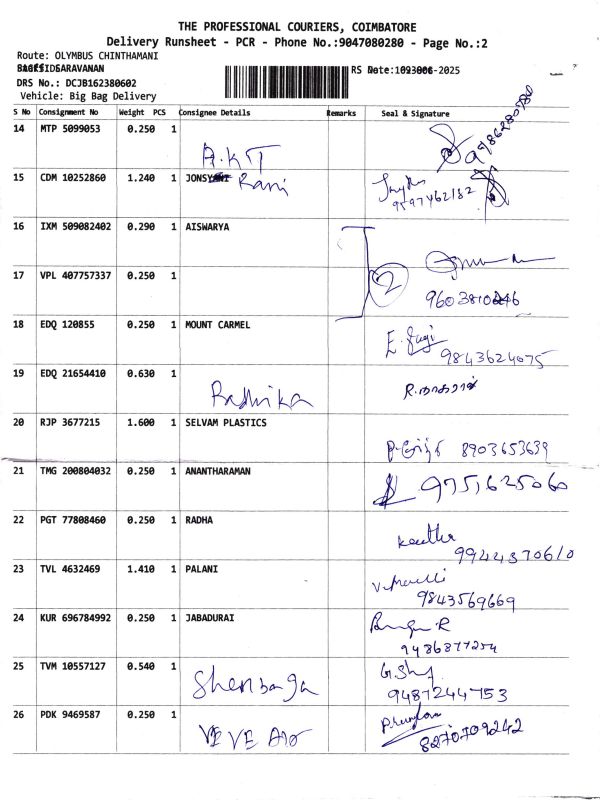 THE PROFESSIONAL COURIERS, COIMBATORE
Delivery Runsheet - PCR - Phone No.:9047080280 - Page No.:2
Route: OLYMBUS CHINTHAMANI
SARAVANAN
DRS No.: DCJB162380602
RS Date: -2025
Vehicle: Big Bag Delivery
S No Consignment No Weight PCS Consignee Details Remarks Seal & Signature
14 MTP 5099053 0.250 1 A.KIT
15 CDM 10252860 1.240 1 JONSY Rani 9597462182
16 IXM 509082402 0.290 1 AISWARYA
17 VPL 407757337 0.250 1 2
18 EDQ 120855 0.250 1 MOUNT CARMEL E. 9843624075
19 EDQ 21654410 0.630 1 Radhika R.நாகராஜ்
20 RJP 3677215 1.600 1 SELVAM PLASTICS 8903653639
21 TMG 200804032 0.250 1 ANANTHARAMAN 9751625060
22 PGT 77808460 0.250 1 RADHA 9944370610
23 TVL 4632469 1.410 1 PALANI 9843569669
24 KUR 696784992 0.250 1 JABADURAI 9486877254
25 TVM 10557127 0.540 1 Shenbaga 9487244753
26 PDK 9469587 0.250 1 VEVE 8270709242